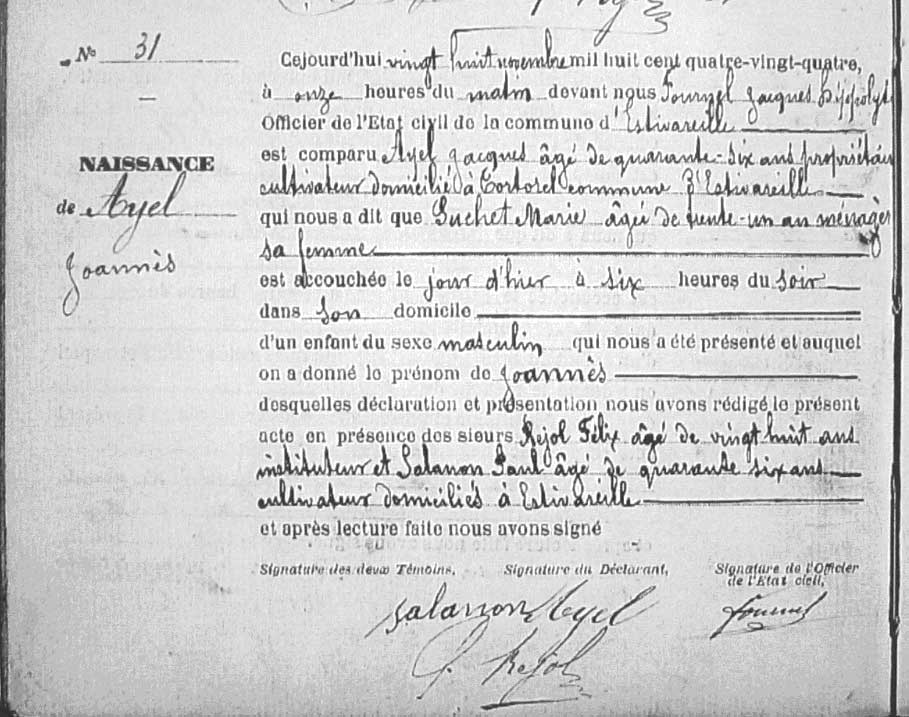 N° 31
NAISSANCE
de Ayel
Joannès
Cejourd'hui vingt huit novembre mil huit cent quatre-vingt-quatre,
à onze heures du matin devant nous Fournel Jacques Hippolyte
Officier de l'Etat civil de la commune d'Estivareille
est comparu Ayel Jacques âgé de quarante-six ans propriétaire
cultivateur domicilié à Tortorel commune d'Estivareille
qui nous a dit que Suchet Marie âgée de trente-un an ménagère
sa femme
est accouchée le jour d'hier à six heures du soir
dans son domicile
d'un enfant du sexe masculin qui nous a été présenté et auquel
on a donné le prénom de Joannès
desquelles déclaration et présentation nous avons rédigé le présent
acte en présence des sieurs Rejol Félix âgé de vingt huit ans
instituteur et Salanon Paul âgé de quarante six ans
cultivateur domiciliés à Estivareille
et après lecture faite nous avons signé
Signature des deux Témoins, Signature du Déclarant, Signature de l'Officier
de l'Etat civil,
Salanon Ayel Fournel
Rejol